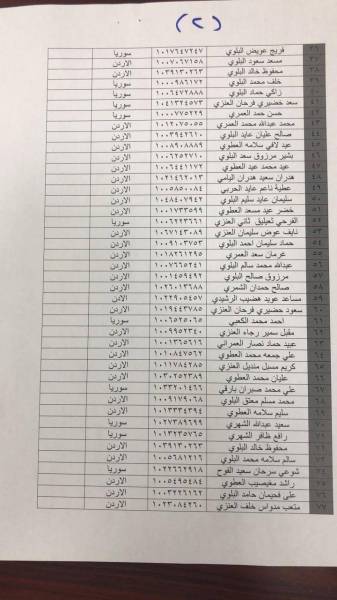 (٢)
٣٦ فريج عويض البلوي ١٠١٧٦٤٧٢٤٧ سوريا
٣٧ مسعد سعود البلوي ١٠٠٧٠٦٧١٥٨ الاردن
٣٨ محفوظ خالد البلوي ١٠٣٩١٣٠٢٦٣ الاردن
٣٩ خلف محمد البلوي ١٠٠٠٩٨٦١٧٢ الاردن
٤٠ زاكي حماد البلوي ١٠٠٦٤٧٢٨٨٨ الاردن
٤١ سعد خضيري فرحان العنزي ١٠٤١٣٢٤٥٧٣ سوريا
٤٢ حسن حمد العمري ١٠٠٠٧٧٥٢٢٩ سوريا
٤٣ محمد عبدالله محمد العمري ١٠١٢٠٧٥٠٥٥ الاردن
٤٤ صالح عليان عايد البلوي ١٠٠٣٩٤٢٦١٠ الاردن
٤٥ عيد لافي سلامه العطوي ١٠٠٨٩٠٨٨٨٩ الاردن
٤٦ بشير مرزوق سعد البلوي ١٠٠٦٢٥٢٧١٠ الاردن
٤٧ عيد محمد عيد العطوي ١٠٠٦٤٤١١٧٢ الاردن
٤٨ هدران سعيد هدران اليامي ١٠٢١٤٦٢٠١٣ الاردن
٤٩ عطية ناعم عايد الحربي ١٠٠٥٨٥٠٠٨٤ الاردن
٥٠ سليمان عايد سليم البلوي ١٠٤٨٤٠٧٩٤٢ الاردن
٥١ خضر عيد مسعد العطوي ١٠٠١٧٣٣٥٩٩ الاردن
٥٢ الفرحي ثاني العنزي ١٠٠٦٢٢٣٦٦١ سوريا
٥٣ نايف عوض سليمان العنزي ١٠٦٧١٤٣٠٨٩ الاردن
٥٤ حماد سليمان احمد البلوي ١٠٠٩١٠٣٧٥٣ الاردن
٥٥ عرمان سعد العمري ١٠١٨٢٦١٢٩٥ الاردن
٥٦ عبدالله محمد سالم البلوي ١٠٠٧٦٦٥٢٤١ الاردن
٥٧ مرزوق صالح البلوي ١٠١٤٥٩٤٩٢ الاردن
٥٨ صالح حمدان الشمري ١٠٢٦٠١٣٦٨٨ الاردن
٥٩ مساعد عويد هضيب الرشيدي ١٠٢٢٩٠٥٤٥٧ الادن
٦٠ سعود خضيري فرحان العنزي ١٠١٩٤٤٣٧٨٥ الاردن
٦١ احمد محمد الكعبي ١٠٠٦٥٢٥٠٦٥ سوريا
٦٢ مقبل سمير رجاء العنزي ١٠٠٩٩٥٢٣٤٠ الاردن
٦٣ عبيد حماد نصار العمراني ١٠٠١٣٦٥٦١٦ الاردن
٦٤ علي جمعه محمد العطوي ١٠١٠٨٤٧٥٦٢ الاردن
٦٥ كريم مسبل منديل العنزي ١٠١١٧٨٤٢٨٥ الاردن
٦٦ عليان محمد العطوي ١٠٣٠٢٥٢٣٨٩ الاردن
٦٧ علي محمد صبران بارقي ١٠٣٣٢٠١٤٦٦ سوريا
٦٨ محمد مسلم معتق البلوي ١٠٠٩١٧٩٠٦٨ الاردن
٦٩ سليم سلامه العطوي ١٠١٣٣٣٤٣٩٤ الاردن
٧٠ سعيد عبدالله الشهري ١٠٢٧٣٨٩٦٩٩ سوريا
٧١ رافع ظافر الشهري ١٠١٣٢٣٥٧٦٥ سوريا
٧٢ محفوظ خالد البلوي ١٠٣٩١٣٠٢٦٣ الاردن
٧٣ سالم سلامه محمد البلوي ١٠٠٥٦٨١٢١٦ الاردن
٧٤ شوعي سرحان سعيد الفوح ١٠٢٢٦٦٢٩١٨ سوريا
٧٥ راشد مفيصيب العطوي ١٠٠٥٤٩٥٤٨٤ الاردن
٧٦ علي فحيمان حامد البلوي ١٠٠٣٢٢٦١٦٢ الاردن
٧٧ متعب مدواس خلف العنزي ١٠٢٣٠٨٤٢٦٠ الاردن